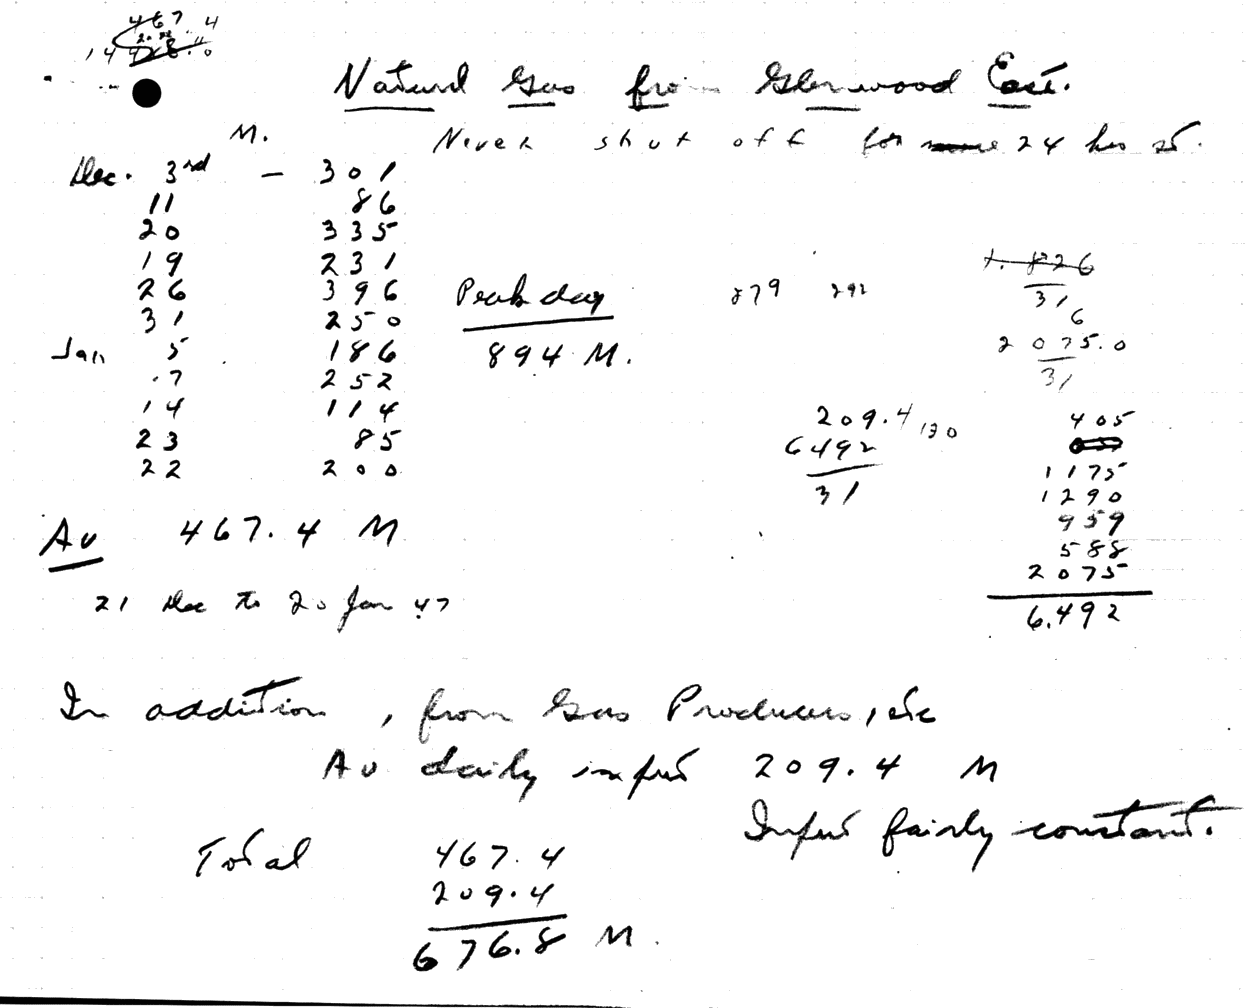 467.4
14428.0
Natural Gas from Glenwood East.
M.
Never shut off for 24 hrs
Dec. 3rd - 301
11 86
20 335
19 231
26 396
31 250
Jan 5 186
7 252
14 114
23 85
22 200
Peak day
894 M.
879 292
1.826
31
6
2075.0
31
209.4 130
6492
31
405
1175
1290
959
588
2075
6.492
Av 467.4 M
21 Dec to 20 Jan 47
In addition, from Gas Producers, etc
Av daily input 209.4 M
Input fairly constant.
Total 467.4
209.4
676.8 M.